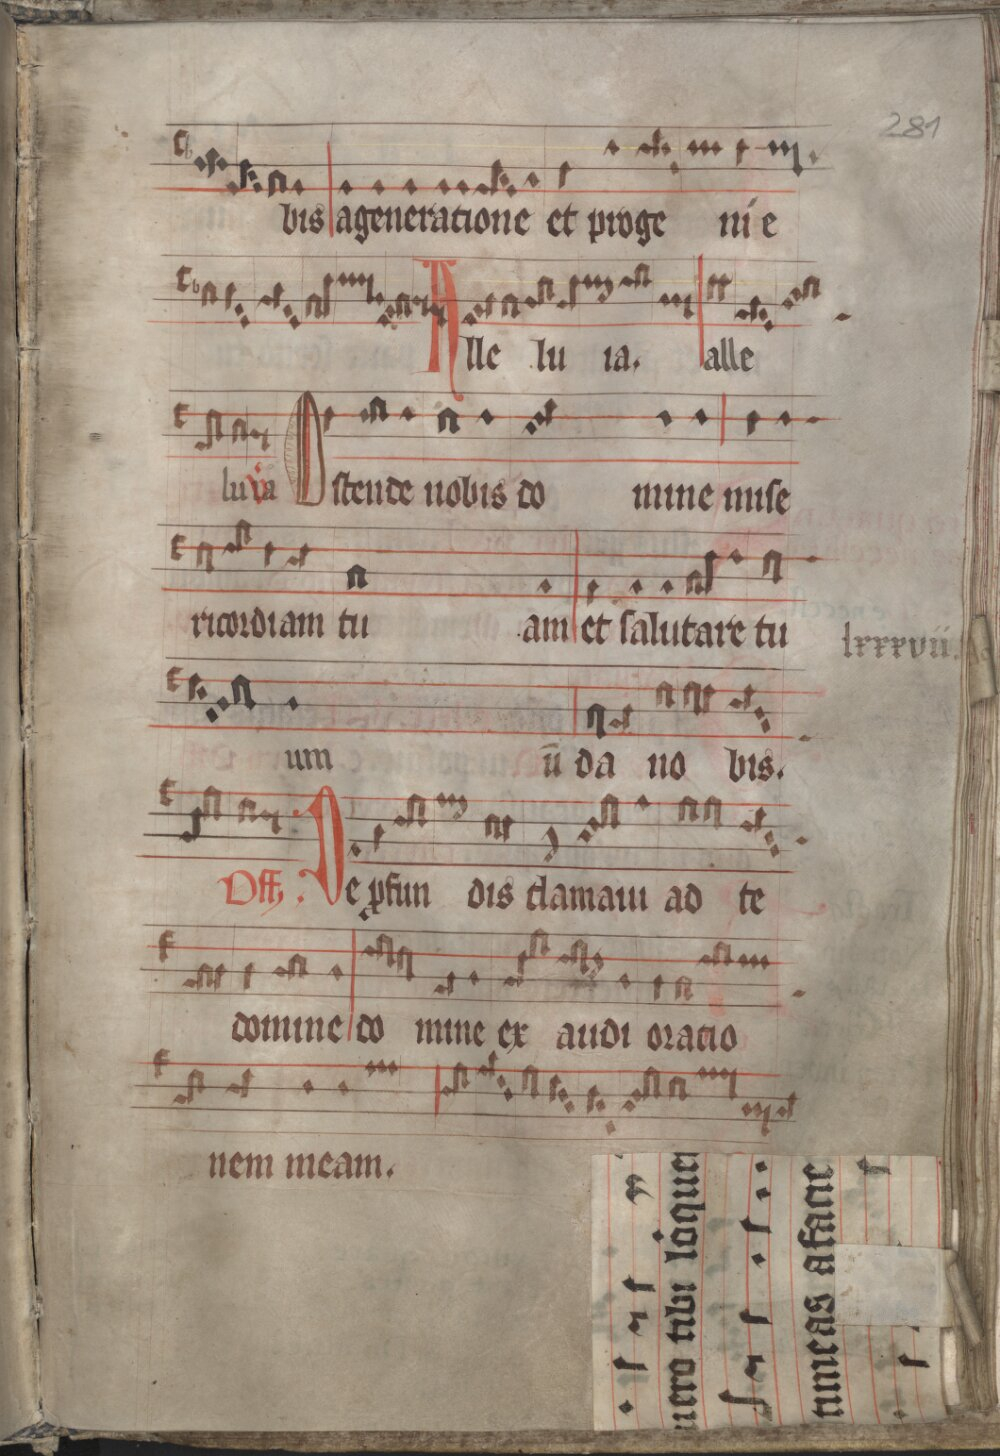 281
bis a generatione et proge nie
Alle lu ia. alle
luya Ostende nobis do mine mise
ricordiam tu am et salutare tu
lxxxvii.
um ū da no bis.
Off. De pfun dis clamaui ad te
domine do mine ex audi oratio
nem meam.
uero tibi loquer
timeas a facie